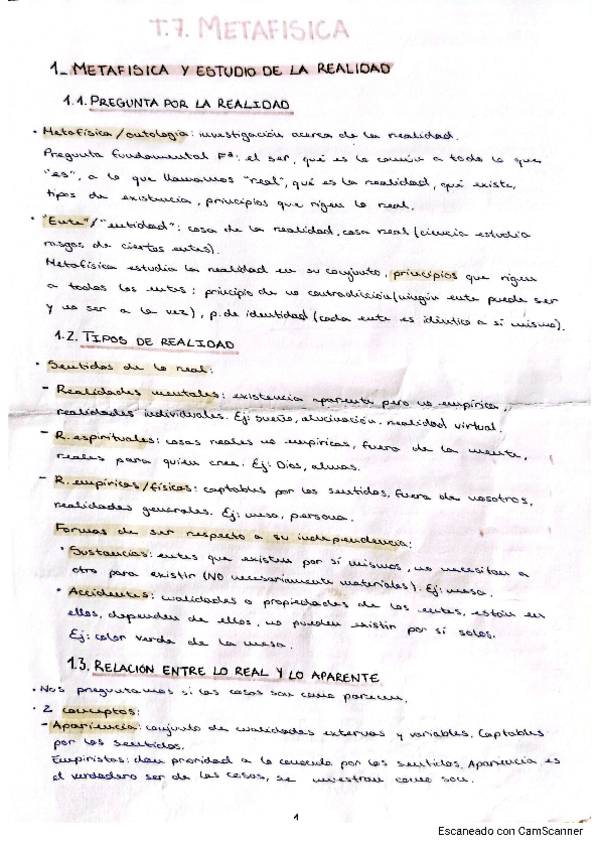 T.7. METAFISICA
1_ METAFISICA Y ESTUDIO DE LA REALIDAD
1.1. PREGUNTA POR LA REALIDAD
• Metafísica/ontología: investigación acerca de la realidad.
Pregunta fundamental Fª: el ser, qué es lo común a todo lo que
"es", a lo que llamamos "real", qué es la realidad, qué existe,
tipos de existencia, principios que rigen lo real.
• "Ente"/"entidad": cosa de la realidad, cosa real (ciencia estudia
rasgos de ciertos entes).
Metafísica estudia la realidad en su conjunto, principios que rigen
a todos los entes: principio de no contradicción (ningún ente puede ser
y no ser a la vez), p. de identidad (cada ente es idéntico a sí mismo).
1.2. TIPOS DE REALIDAD
• Sentidos de lo real:
- Realidades mentales: existencia aparente pero no empírica,
realidades individuales. Ej: sueño, alucinación, realidad virtual.
- R. espirituales: cosas reales no empíricas, fuera de la mente,
reales para quien cree. Ej: Dios, almas.
- R. empíricas/físicas: captables por los sentidos, fuera de nosotros,
realidades generales. Ej: mesa, persona.
Formas de ser respecto a su independencia:
• Sustancias: entes que existen por sí mismos, no necesitan a
otro para existir (NO necesariamente materiales). Ej: mesa.
• Accidentes: cualidades o propiedades de los entes, están en
ellos, dependen de ellos, no pueden existir por sí solos.
Ej: color verde de la mesa.
1.3. RELACIÓN ENTRE LO REAL Y LO APARENTE
• Nos preguntamos si las cosas son como parecen.
• 2 conceptos:
- Apariencia: conjunto de cualidades externas y variables. Captables
por los sentidos.
Empiristas: dan prioridad a lo conocido por los sentidos. Apariencia es
el verdadero ser de las cosas, se muestran como son.
1
Escaneado con CamScanner